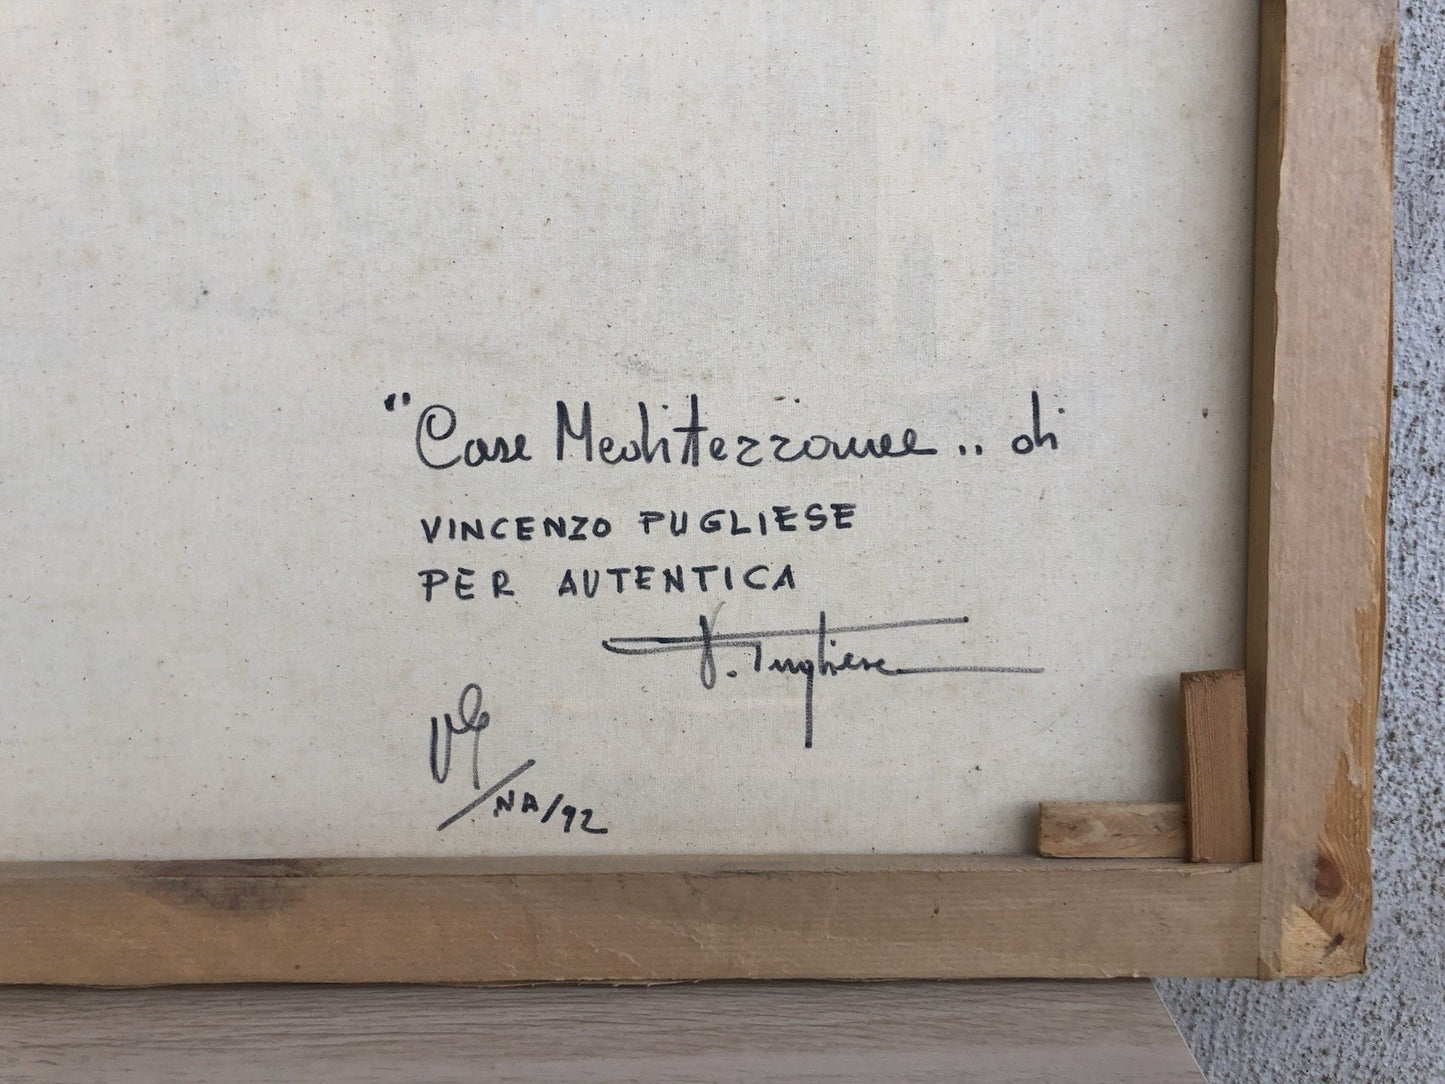 "Case Mediterranee.. di
VINCENZO PUGLIESE
PER AUTENTICA
V. Pugliese
NA/92